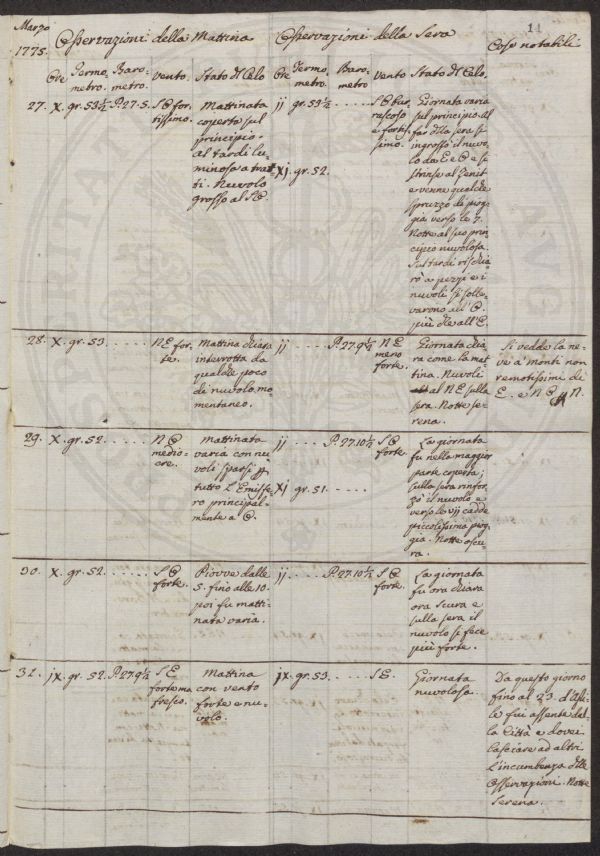 Marzo
1775.
11
Osservazioni della Mattina
Osservazioni della Sera
Cose notabili
Ore
Termo-
metro.
Baro-
metro.
Vento.
Stato del Celo
Ore
Termo-
metro.
Baro-
metro
Vento
Stato del Celo.
27.
X. gr. 53½
P. 27. 5.
S O for-
tissimo.
Mattinata
coperta sul
principio.
al tardi lu-
minosa a trat-
ti. Nuvolo
grosso al S O.
jj gr. 53½ . . . . .
XI. gr. 52.
S O bur-
rascoso
e fortis-
simo.
Giornata varia
sul principio. al
far della sera s'
ingrossò il nuvo-
lo da E e O e si
strinse al Zenit
e venne qualche
spruzzo di piog-
gia verso le 7.
Notte al suo prin-
cipio nuvolosa.
Sul tardi rischia-
rò a pezzi e i
nuvoli si solle-
varono all' O.
più che all' E.
28.
X. gr. 53. . . . . .
N E for-
te.
Mattina chiara
interrotta da
qualche poco
di nuvolo mo-
mentaneo.
jj . . . . . P. 27. 9½
N E
meno
forte.
Giornata chia-
ra come la mat-
tina. Nuvoli
al N E sulla
sera. Notte se-
rena.
Si vedde la ne-
ve a' monti non
remotissimi di
E. e N O N.
29.
X. gr. 52. . . . . .
N O
medio-
cre.
Mattinata
varia con nu-
voli sparsi p
tutto l'Emisfe-
ro principal-
mente a O.
jj . . . . P. 27. 10½
XI gr. 51. . . . .
S O
forte
La giornata
fu nella maggior
parte coperta;
sulla sera rinfor-
zò il nuvolo e
verso le vij cadde
piccolissima piog-
gia. Notte oscu-
ra.
30.
X. gr. 52. . . . . .
S O
forte.
Piovve dalle
5. fino alle 10.
poi fu matti-
nata varia.
jj . . . . . P. 27. 10½
S O
forte.
La giornata
fu ora chiara
ora scura e
sulla sera il
nuvolo si fece
più forte.
31.
jx. gr. 52. P. 27. 9½
S E
forte ma
fresco.
Mattina
con vento
forte e nu-
volo.
jx. gr. 53. . . . . .
S E.
Giornata
nuvolosa.
Da questo giorno
fino al 23. d'Apri-
le fui assente dal-
la Città e dovei
lasciare ad altri
l'incumbenza delle
Osservazioni. Notte
serena.